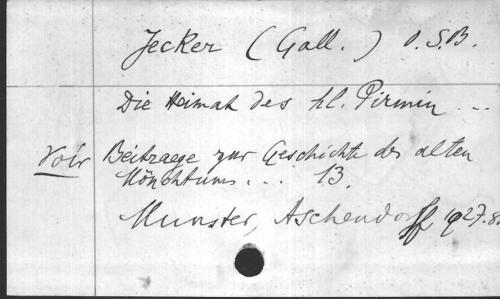 Jecker (Gall.) O.S.B.
Die Heimat des hl. Pirmin ...
Voir Beitraege zur Geschichte des alten
Mönchtums... 13.
Munster, Aschendorff 1927. 8